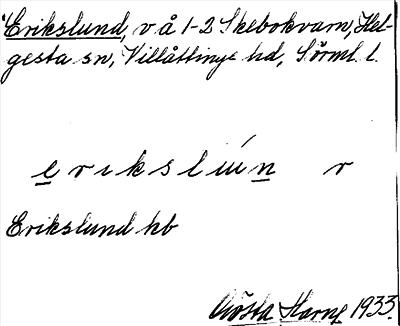 Erikslund, v å 1-2 Skebokvarn, Hel-
gesta sn, Villåttinge hd, Sörml. l.
e r i k s l uń n v
Erikslund hb
Gösta Harne 1933.